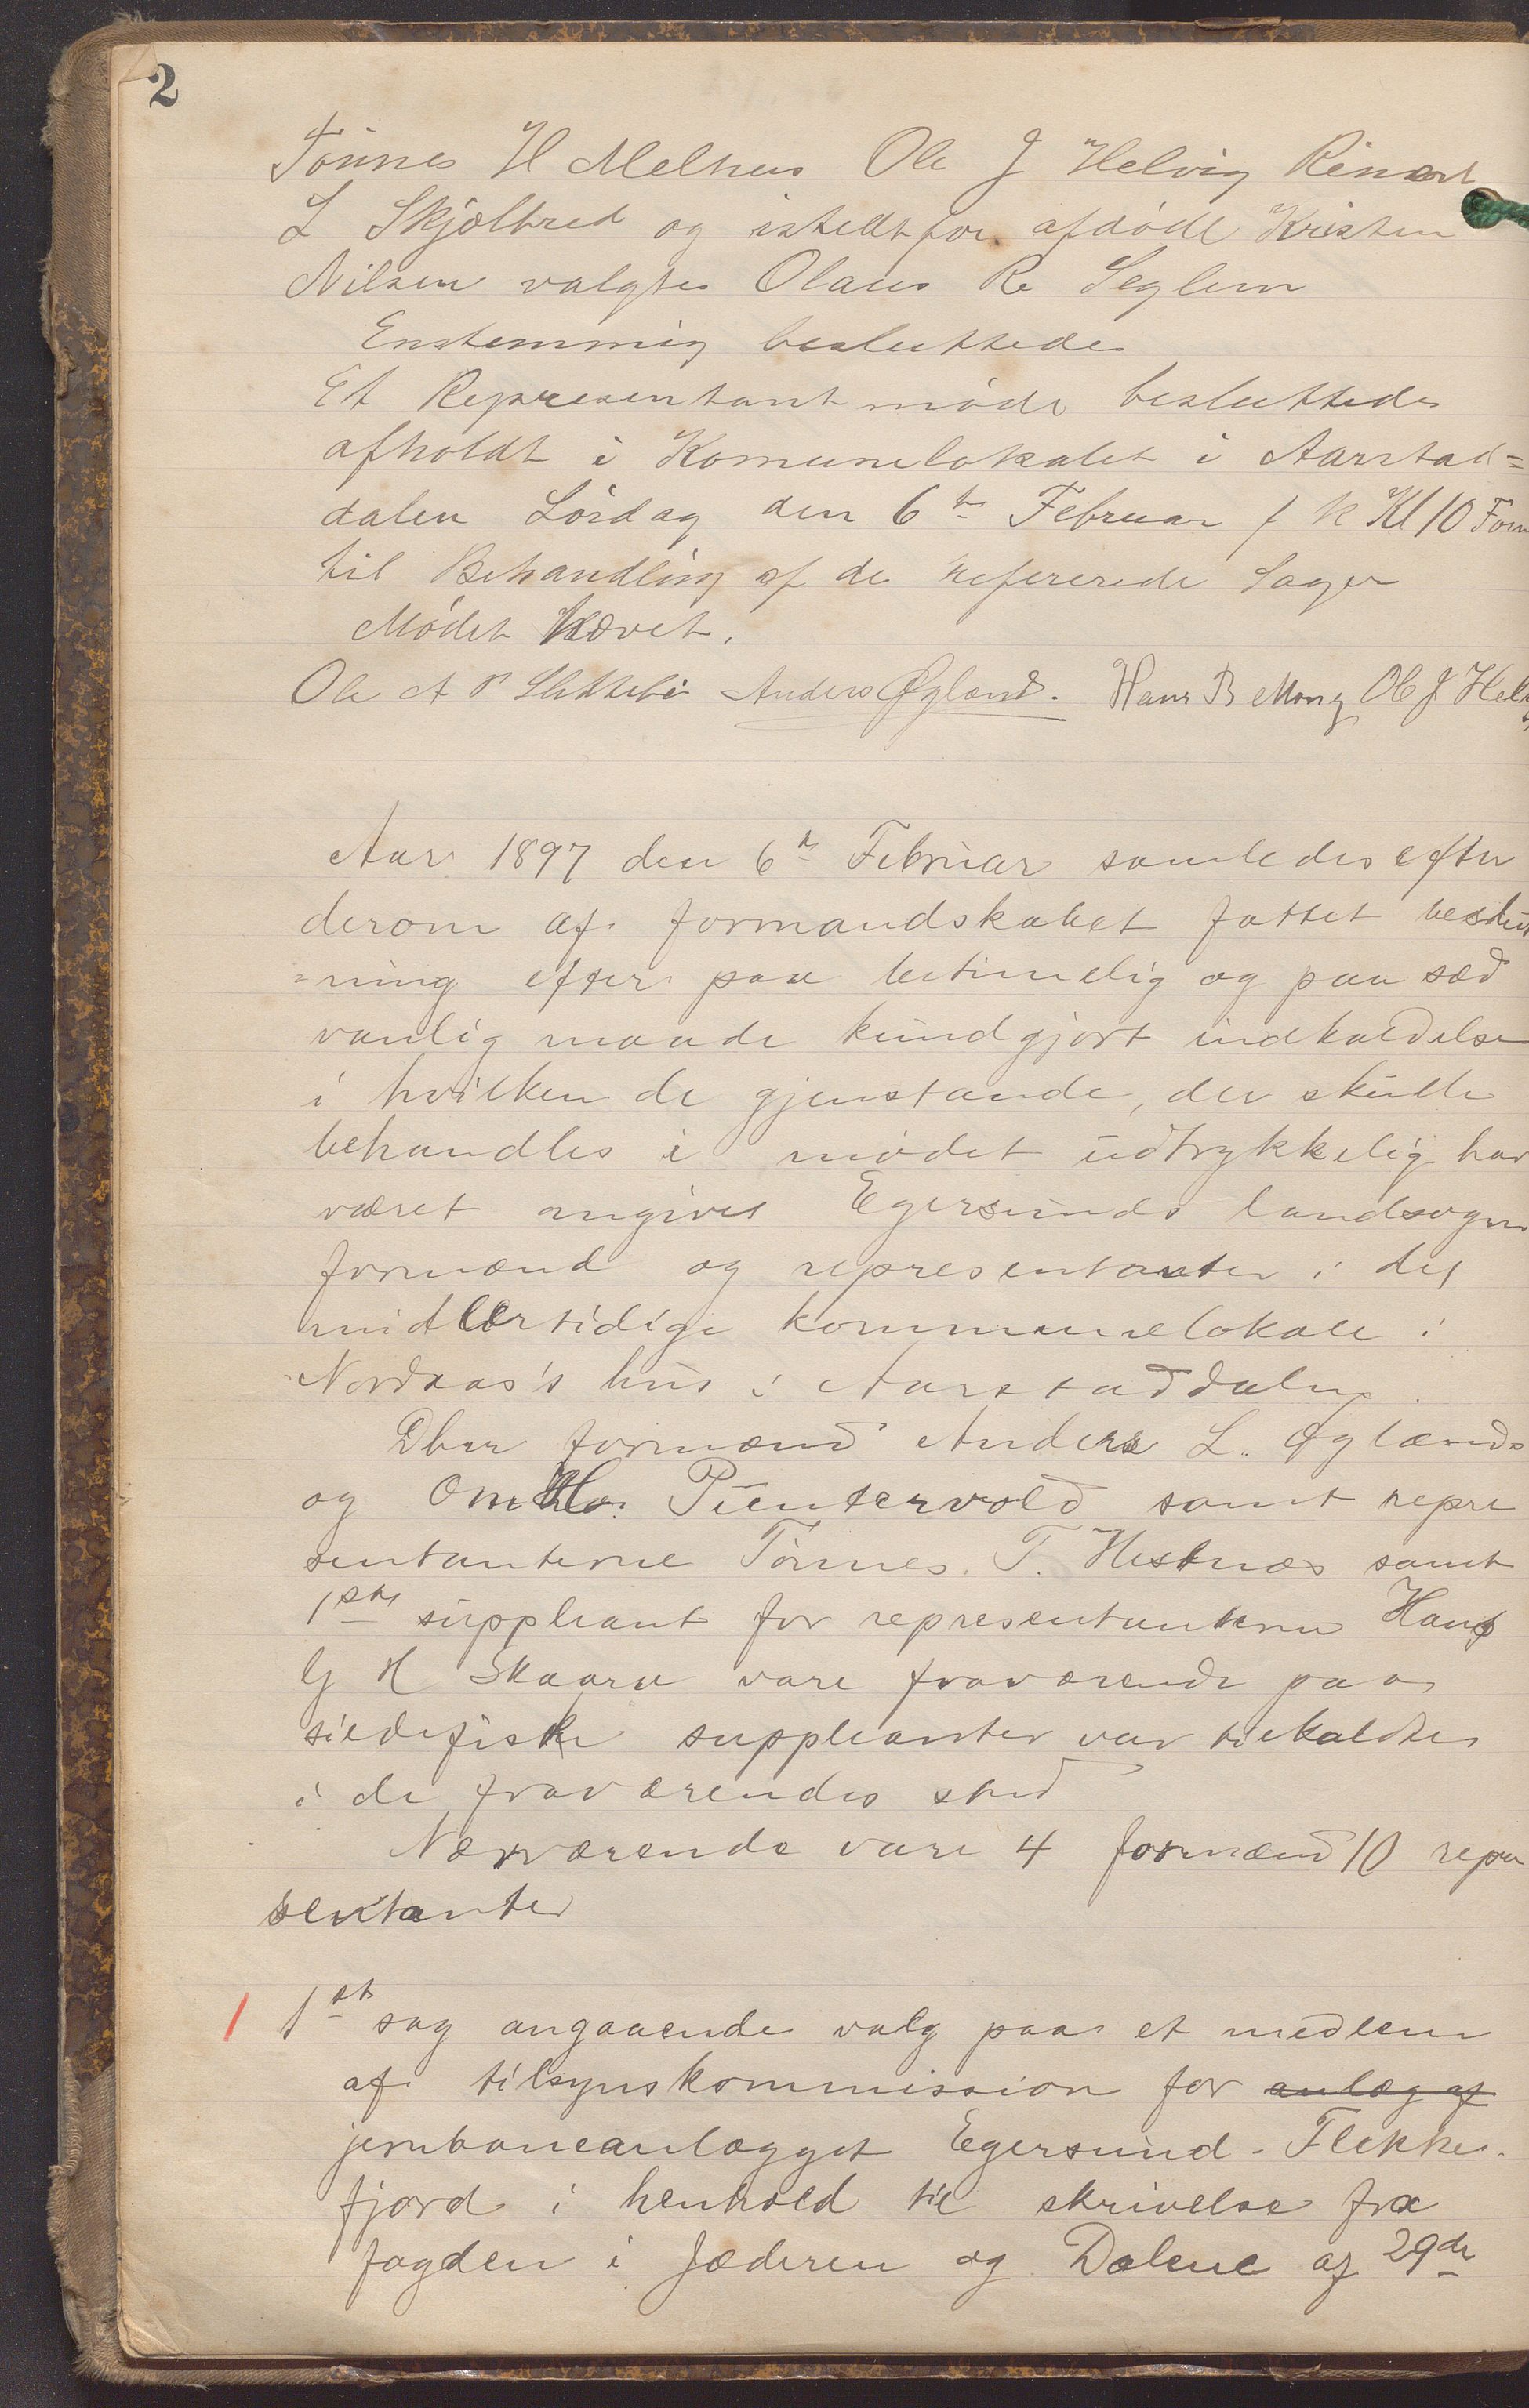 2
Tønnes H Melhus Ole J Helvig
L Skjælbred og istedtfor afdøde Kristen
Nilsen valgtes Olaus R Seglem
Enstemmig besluttedes
Et Representantmøde besluttedes
afholdt i Komunelokalet i Aarstad=
dalen Lørdag den 6te Februar f k Kl 10 Form
til Behandling af de refererede Sager
Mødet hævet.
Ole A P Slettebø Anders Øgland. Hans B Mong Ole J Helvig
Aar 1897 den 6te Februar samledes efter
derom af formandskabet fattet beslut
=ning efter paa betimelig og paa sæd
vanlig maade kundgjort indkaldelse
i hvilken de gjenstande, der skulle
behandles i mødet udtrykkelig har
været angivet Egersunds landsogns
formænd og representanter i det
midlertidige kommunelokale i
Nordaas's hus i Aarstaddalen.
Dhrr formænd Anders L. Øglænd
og Puntervold samt repre
sentanterne Tønnes. T. Hestnæs samt
1ste suppleant for representanterne Hans
G H Skaara vare fraværende paa
sildefiske suppleanter var tilkaldte
i de fraværendes sted
Nærværende vare 4 formænd 10 repre
sentanter
1 1st sag angaaende valg paa et medlem
af tilsynskommission for anlæg af
jernbaneanlægget Egersund-Flekke-
fjord i henhold til skrivelse fra
fogden i Jæderen og Dalene af 29de